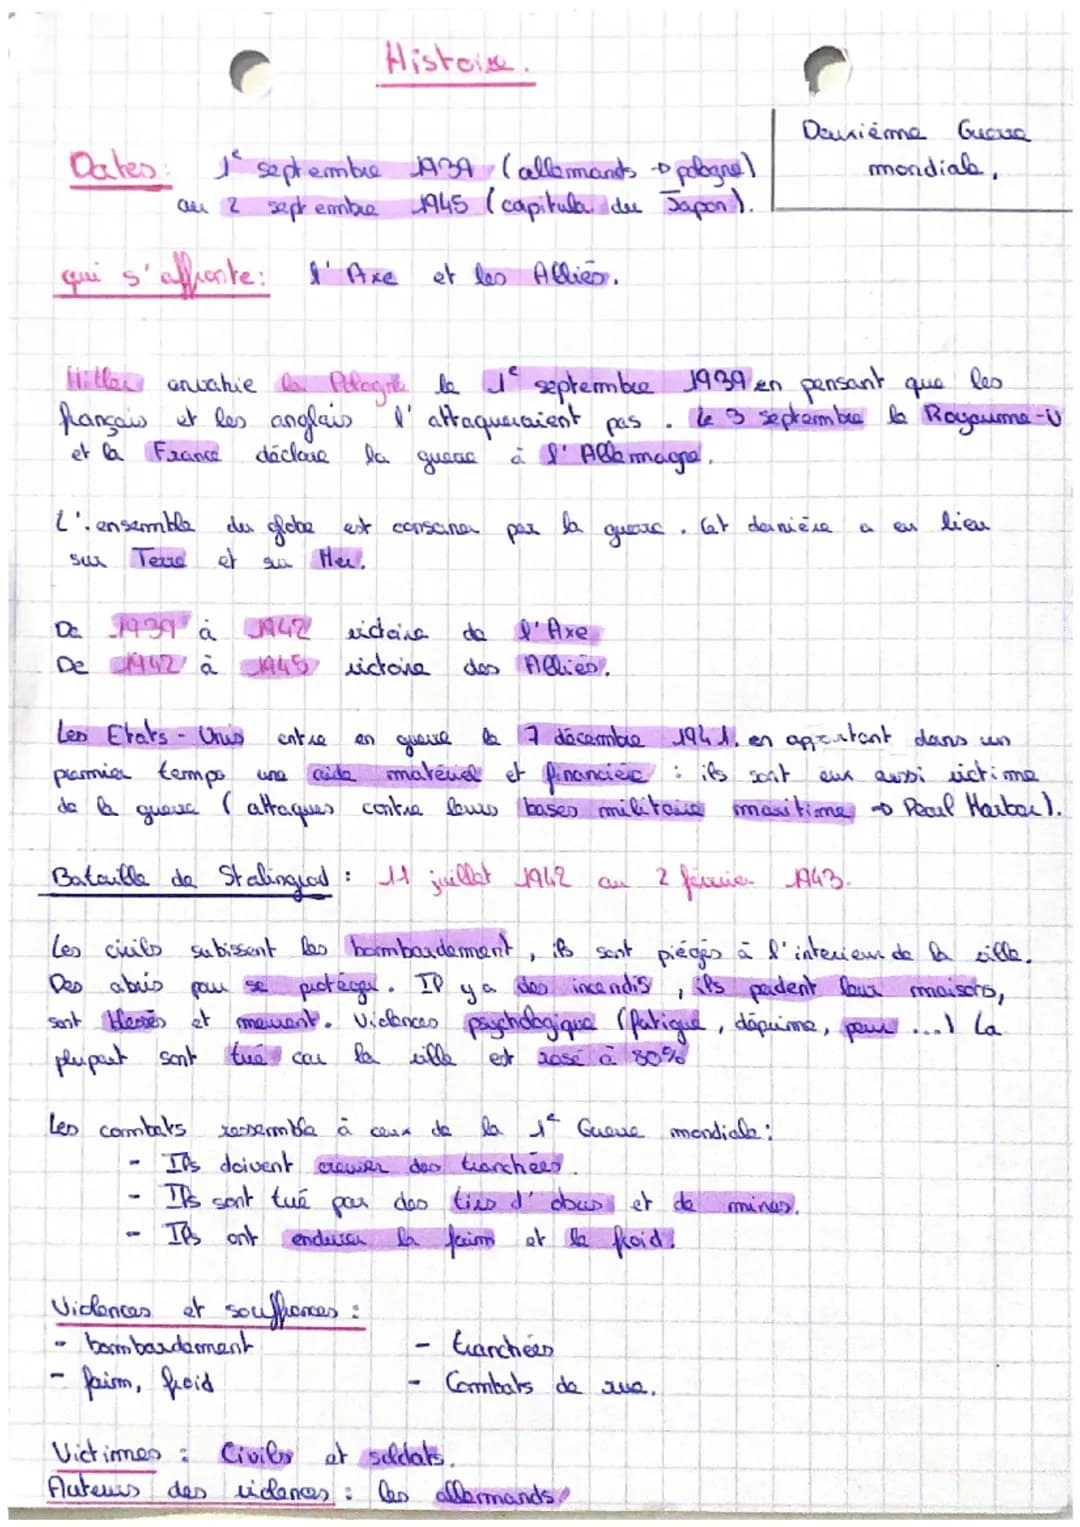 Histoire.
Deuxième Guerre
mondiale.
Dates: 1e septembre 1939 (allemands → pologne)
au 2 septembre 1945 (capitula du Japon).
qui s'affronte: l'Axe et les Alliés.
Hitler envahie la Pologne le 1e septembre 1939 en pensant que les
français et les anglais l'attaqueraient pas. Le 3 septembre le Royaume-U
et la France déclare la guerre à l'Allemagne.
L'ensemble du globe est consciner par la guerre. Cet dernière a eu lieu
sur Terre et sur Mer.
De 1939 à 1942 victoire de l'Axe
De 1942 à 1945 victoire des Alliés.
Les Etats-Unis entre en guerre le 7 décembre 1941. en apportant dans un
premier temps une aide matériel et financière : ils sont eux aussi victime
de la guerre (attaques contre leurs bases militaire maritime → Pearl Harbor).
Bataille de Stalingrad : 11 juillet 1942 au 2 février 1943.
Les civils subissent les bombardement, ils sont piégés à l'interieur de la ville.
Des abris pour se protéger. Il y a des incendis, ils perdent leur maisons,
sont blessés et meurent. Violences psychologique (fatigue, déprime, peur ...) La
plupart sont tué car la ville est rasé à 80%
Les combats ressemble à ceux de la 1e Guerre mondiale:
- Ils doivent creuser des tranchées.
- Ils sont tué par des tirs d'obus et de mines.
- Ils ont endurer la faim et le froid.
Violences et souffrances :
- bombardement - tranchées
- faim, froid - Combats de rue.
Victimes : Civils et soldats.
Auteurs des violences : les allemands.